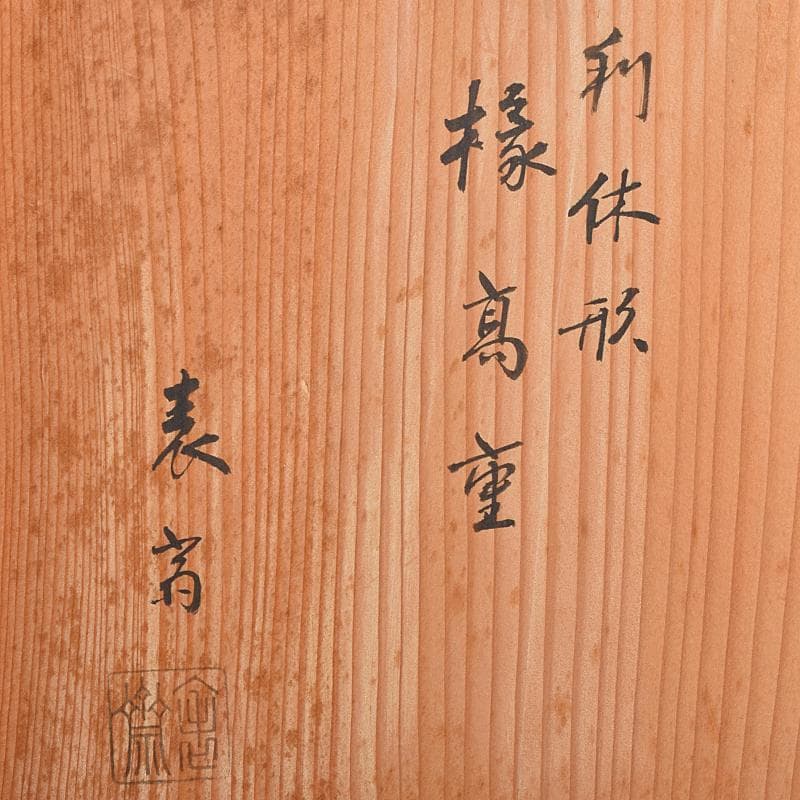 利休形
椽高重
表斎